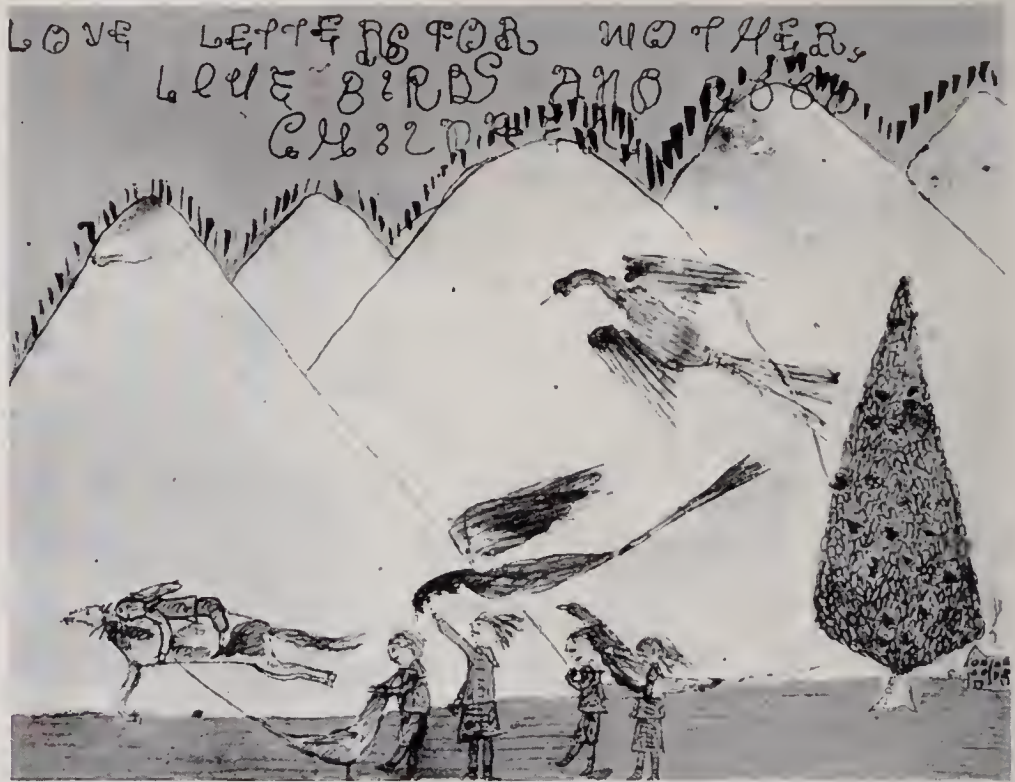 LOVE LETTERS FOR MOTHER,
LOVE BIRDS AND GOOD
CHILDREN